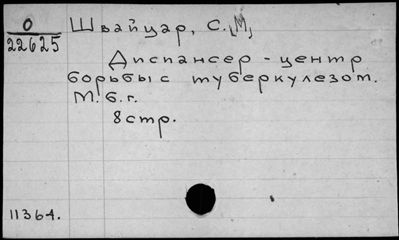 О
22625
Швайцар, С. [М]
Диспансер - центр
борьбы с туберкулезом.
М. б. г.
8 стр.
11364.